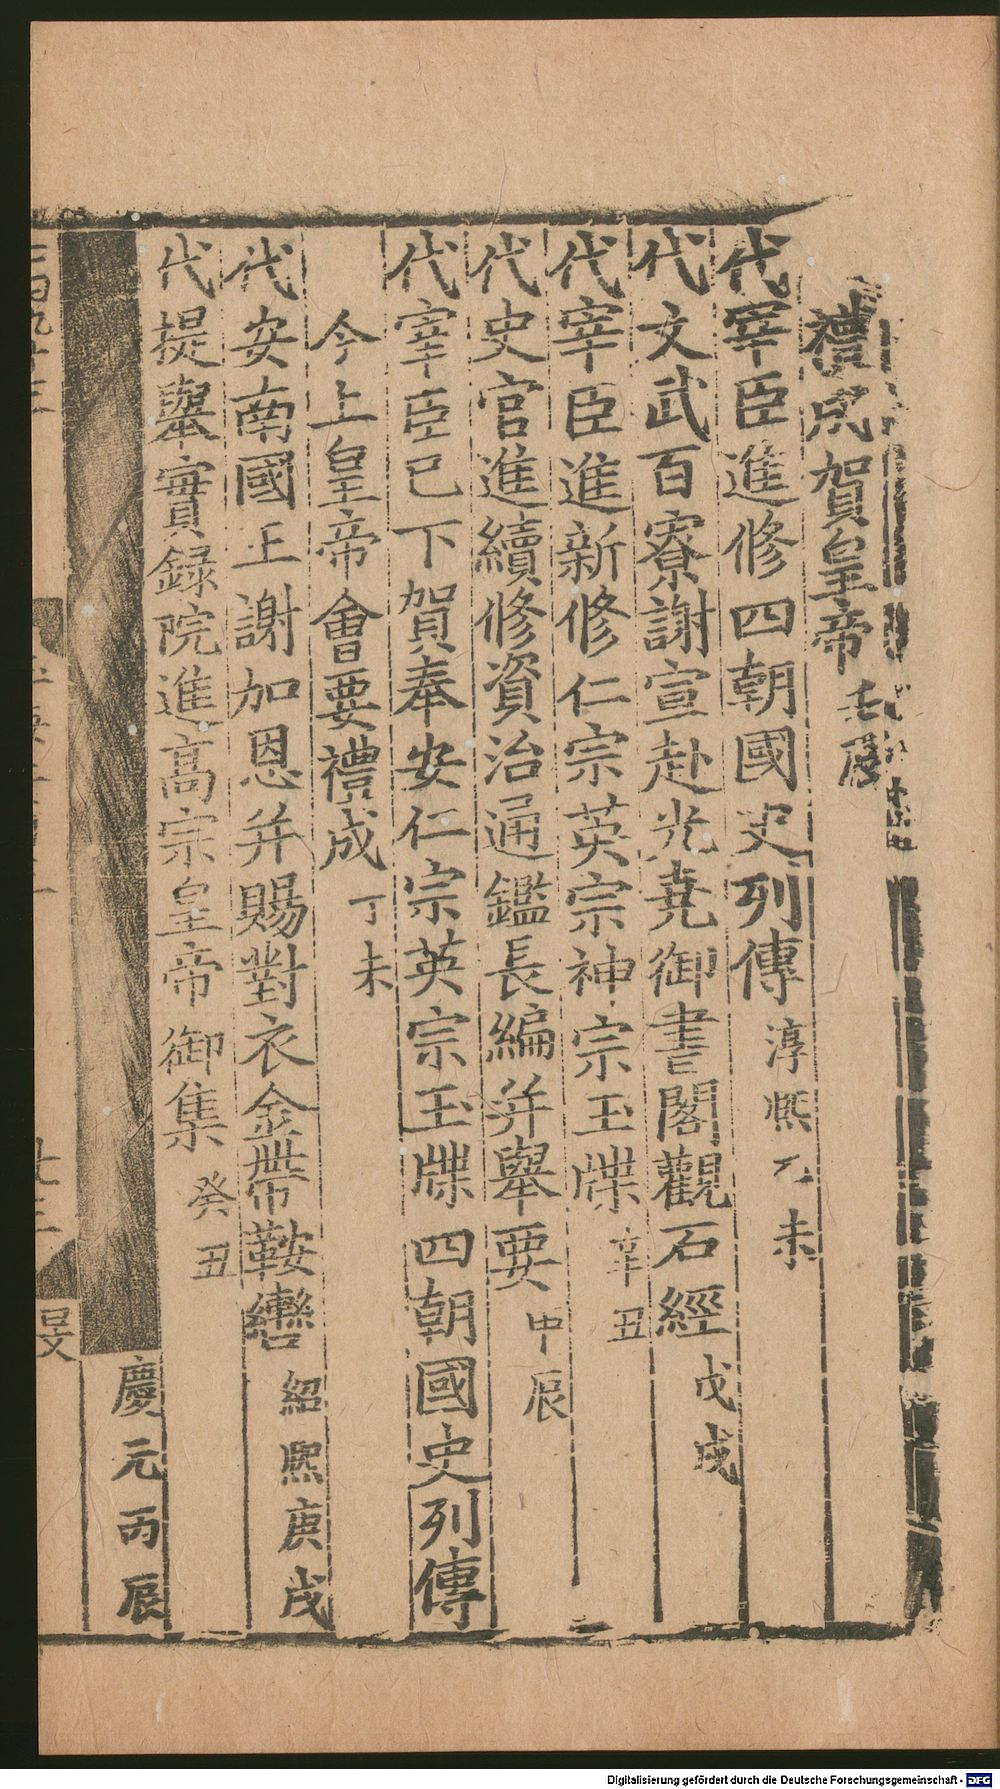 禮成賀皇帝 壬辰
代宰臣進修四朝國史列傳 淳熙乙未
代文武百寮謝宣赴光堯御書閣觀石經 戊戌
代宰臣進新修仁宗英宗神宗玉牒 辛丑
代史官進續修資治通鑑長編并舉要 甲辰
代宰臣已下賀奉安仁宗英宗玉牒四朝國史列傳
今上皇帝會要禮成 丁未
代安南國王謝加恩并賜對衣金帶鞍轡 紹熙庚戌
代提舉實録院進高宗皇帝御集 癸丑
慶元丙辰
Digitalisierung gefördert durch die Deutsche Forschungsgemeinschaft - DFG